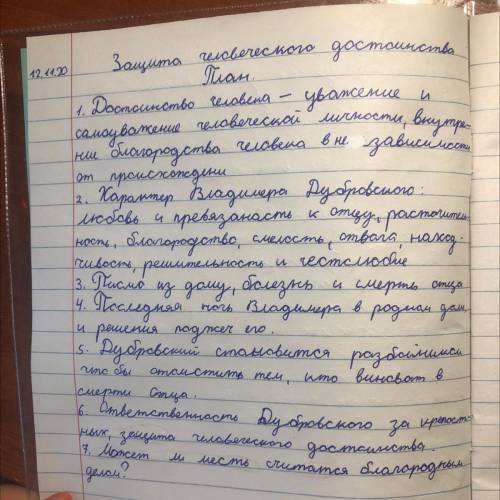 12.11.20
Защита человеческого достоинства
План.
1. Достоинство человека – уважение и
самоуважение человеческой личности, внутре-
ние благородства человека в не зависимости
от происхождени
2. Характер Владимера Дубровского:
любовь и превязаность к отцу, расточитель-
ность, благородство, смелость, отвага, наход-
чивость, решительность и честолюбие
3. Письмо из дому, болезнь и смерть отца
4. Последняя ночь Владимера в родном доме,
и решения поджеч его.
5. Дубровский становится разбойником
что бы отомстить тем, кто виноват в
смерти отца.
6. Ответственность Дубровского за крепост-
ных, защита человеческого достоинства.
7. Может ли месть считатся благородным
делом?